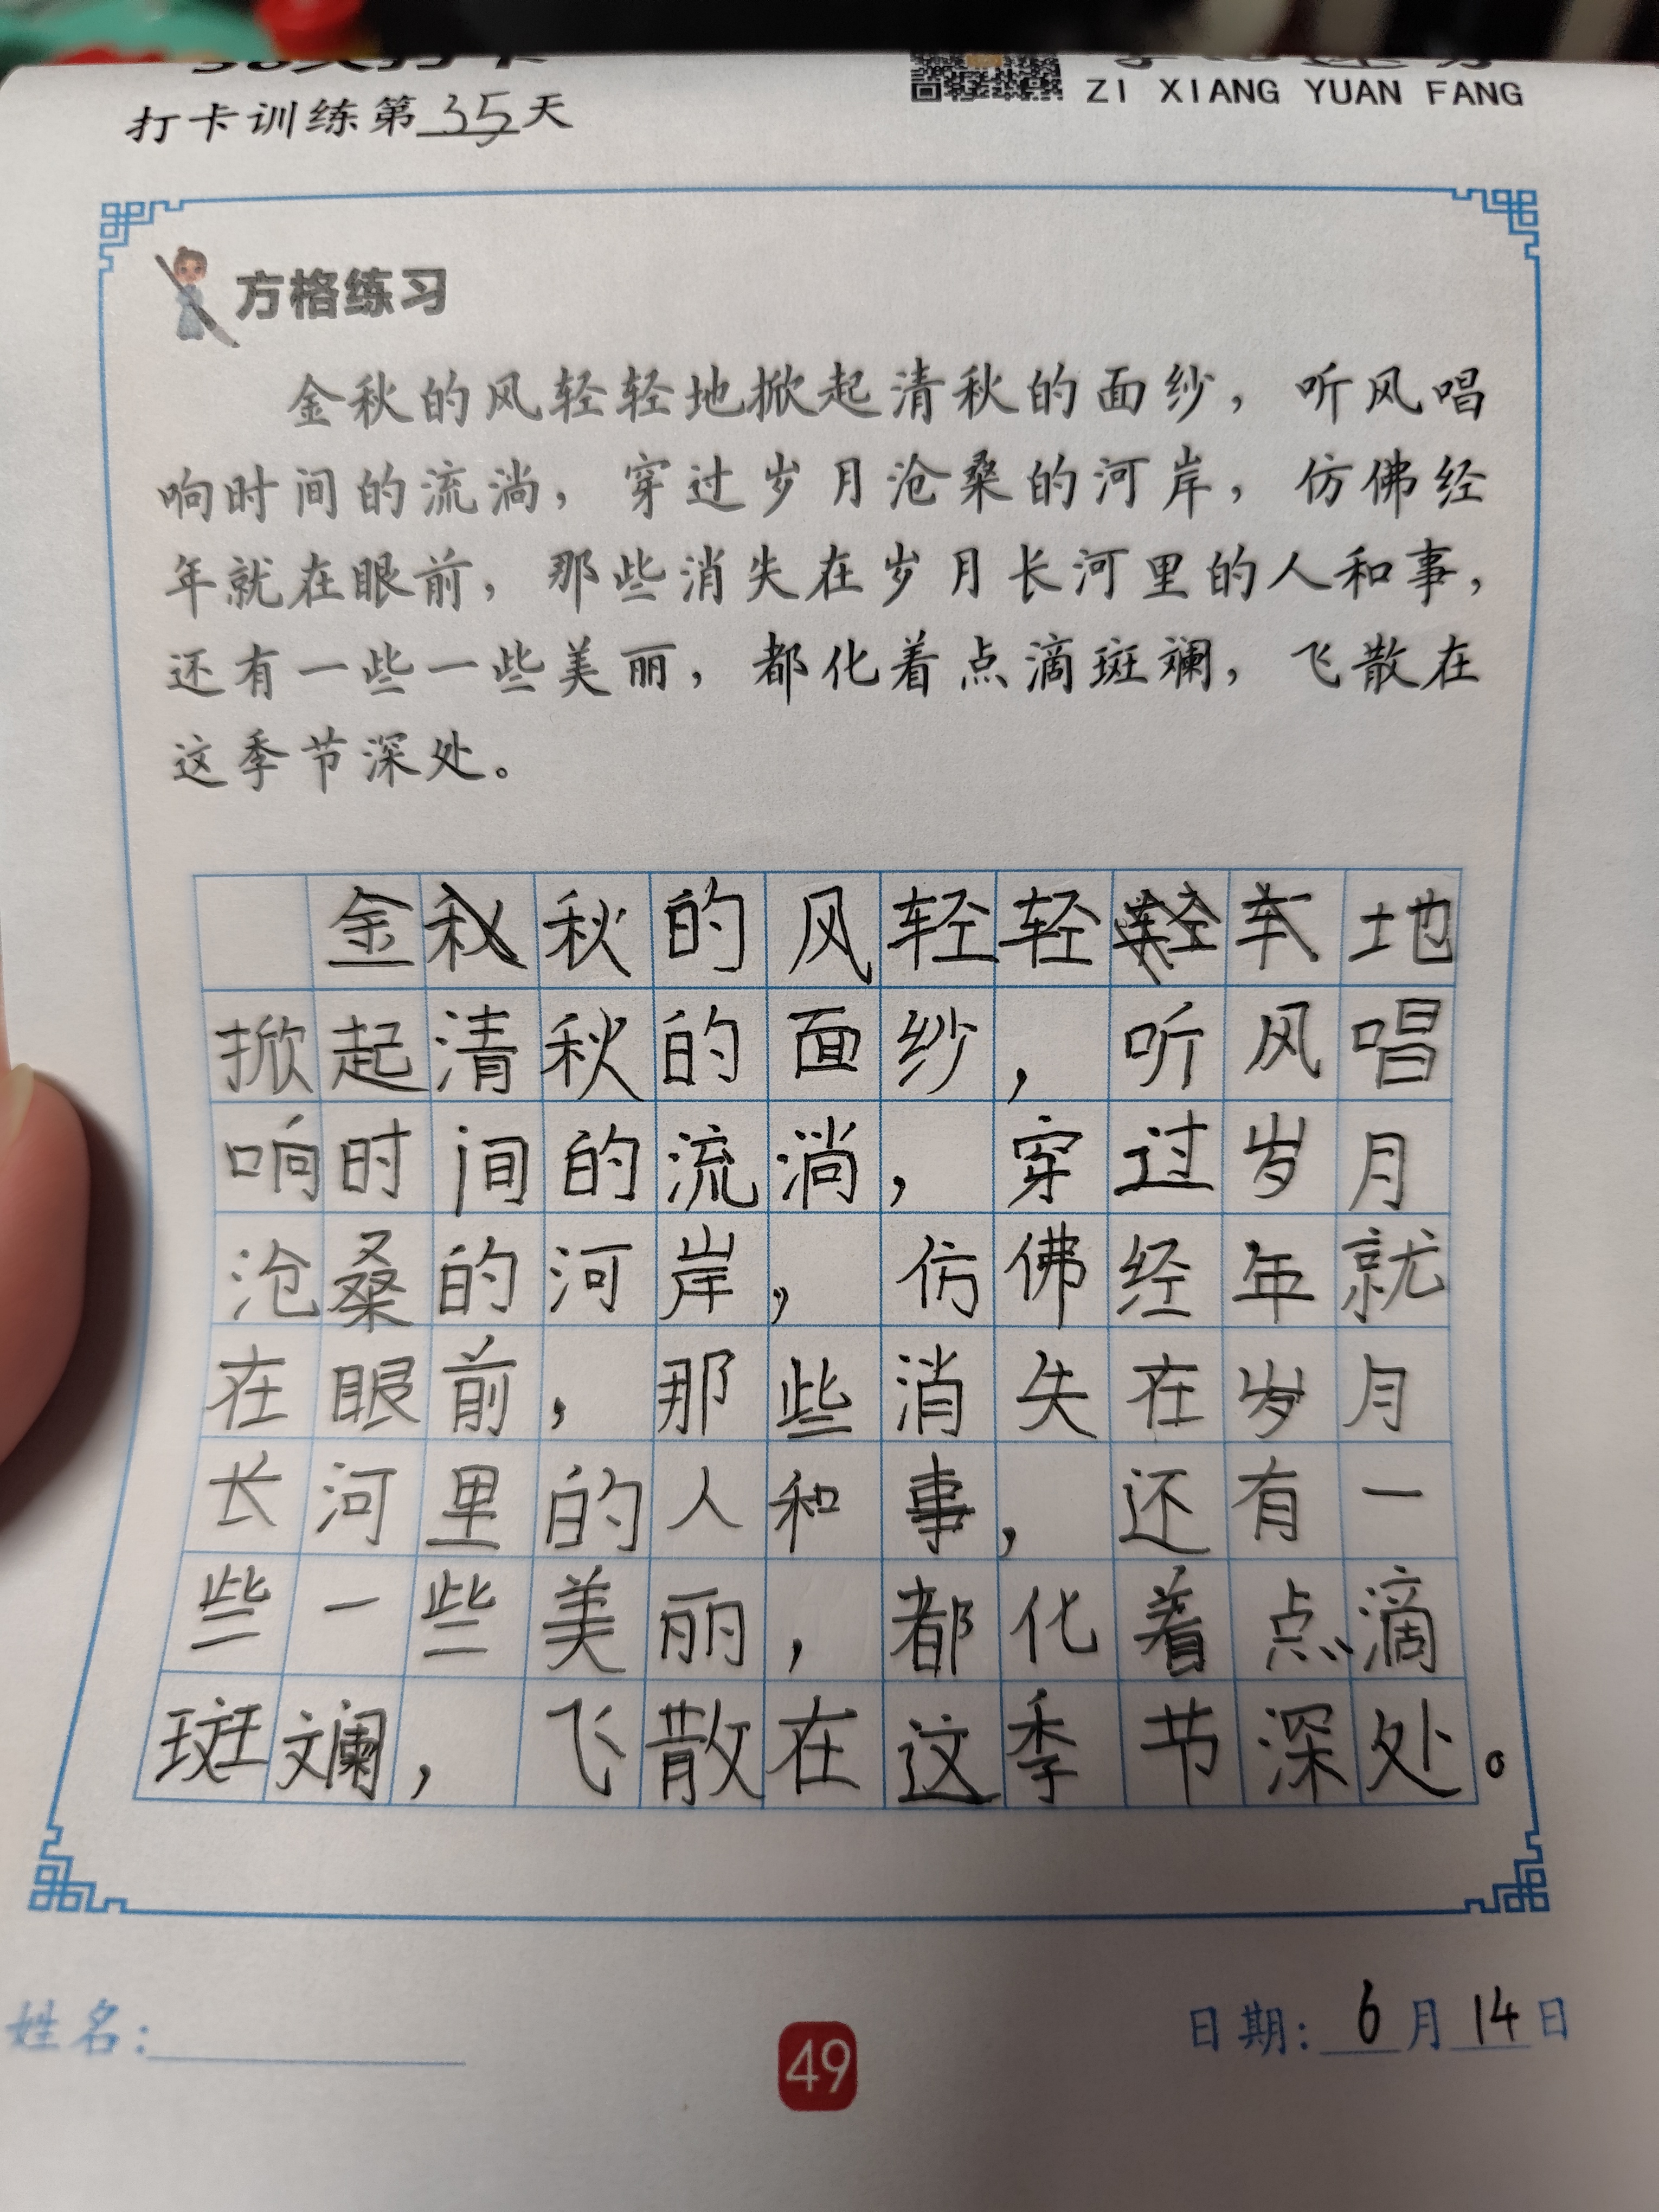 打卡训练第35天
ZI XIANG YUAN FANG
方格练习
金秋的风轻轻地掀起清秋的面纱，听风唱
响时间的流淌，穿过岁月沧桑的河岸，仿佛经
年就在眼前，那些消失在岁月长河里的人和事，
还有一些一些美丽，都化着点滴斑斓，飞散在
这季节深处。
金秋的风轻轻地
掀起清秋的面纱，听风唱
响时间的流淌，穿过岁月
沧桑的河岸，仿佛经年就
在眼前，那些消失在岁月
长河里的人和事，还有一
些一些美丽，都化着点滴
斑斓，飞散在这季节深处。
姓名：
49
日期：6月14日